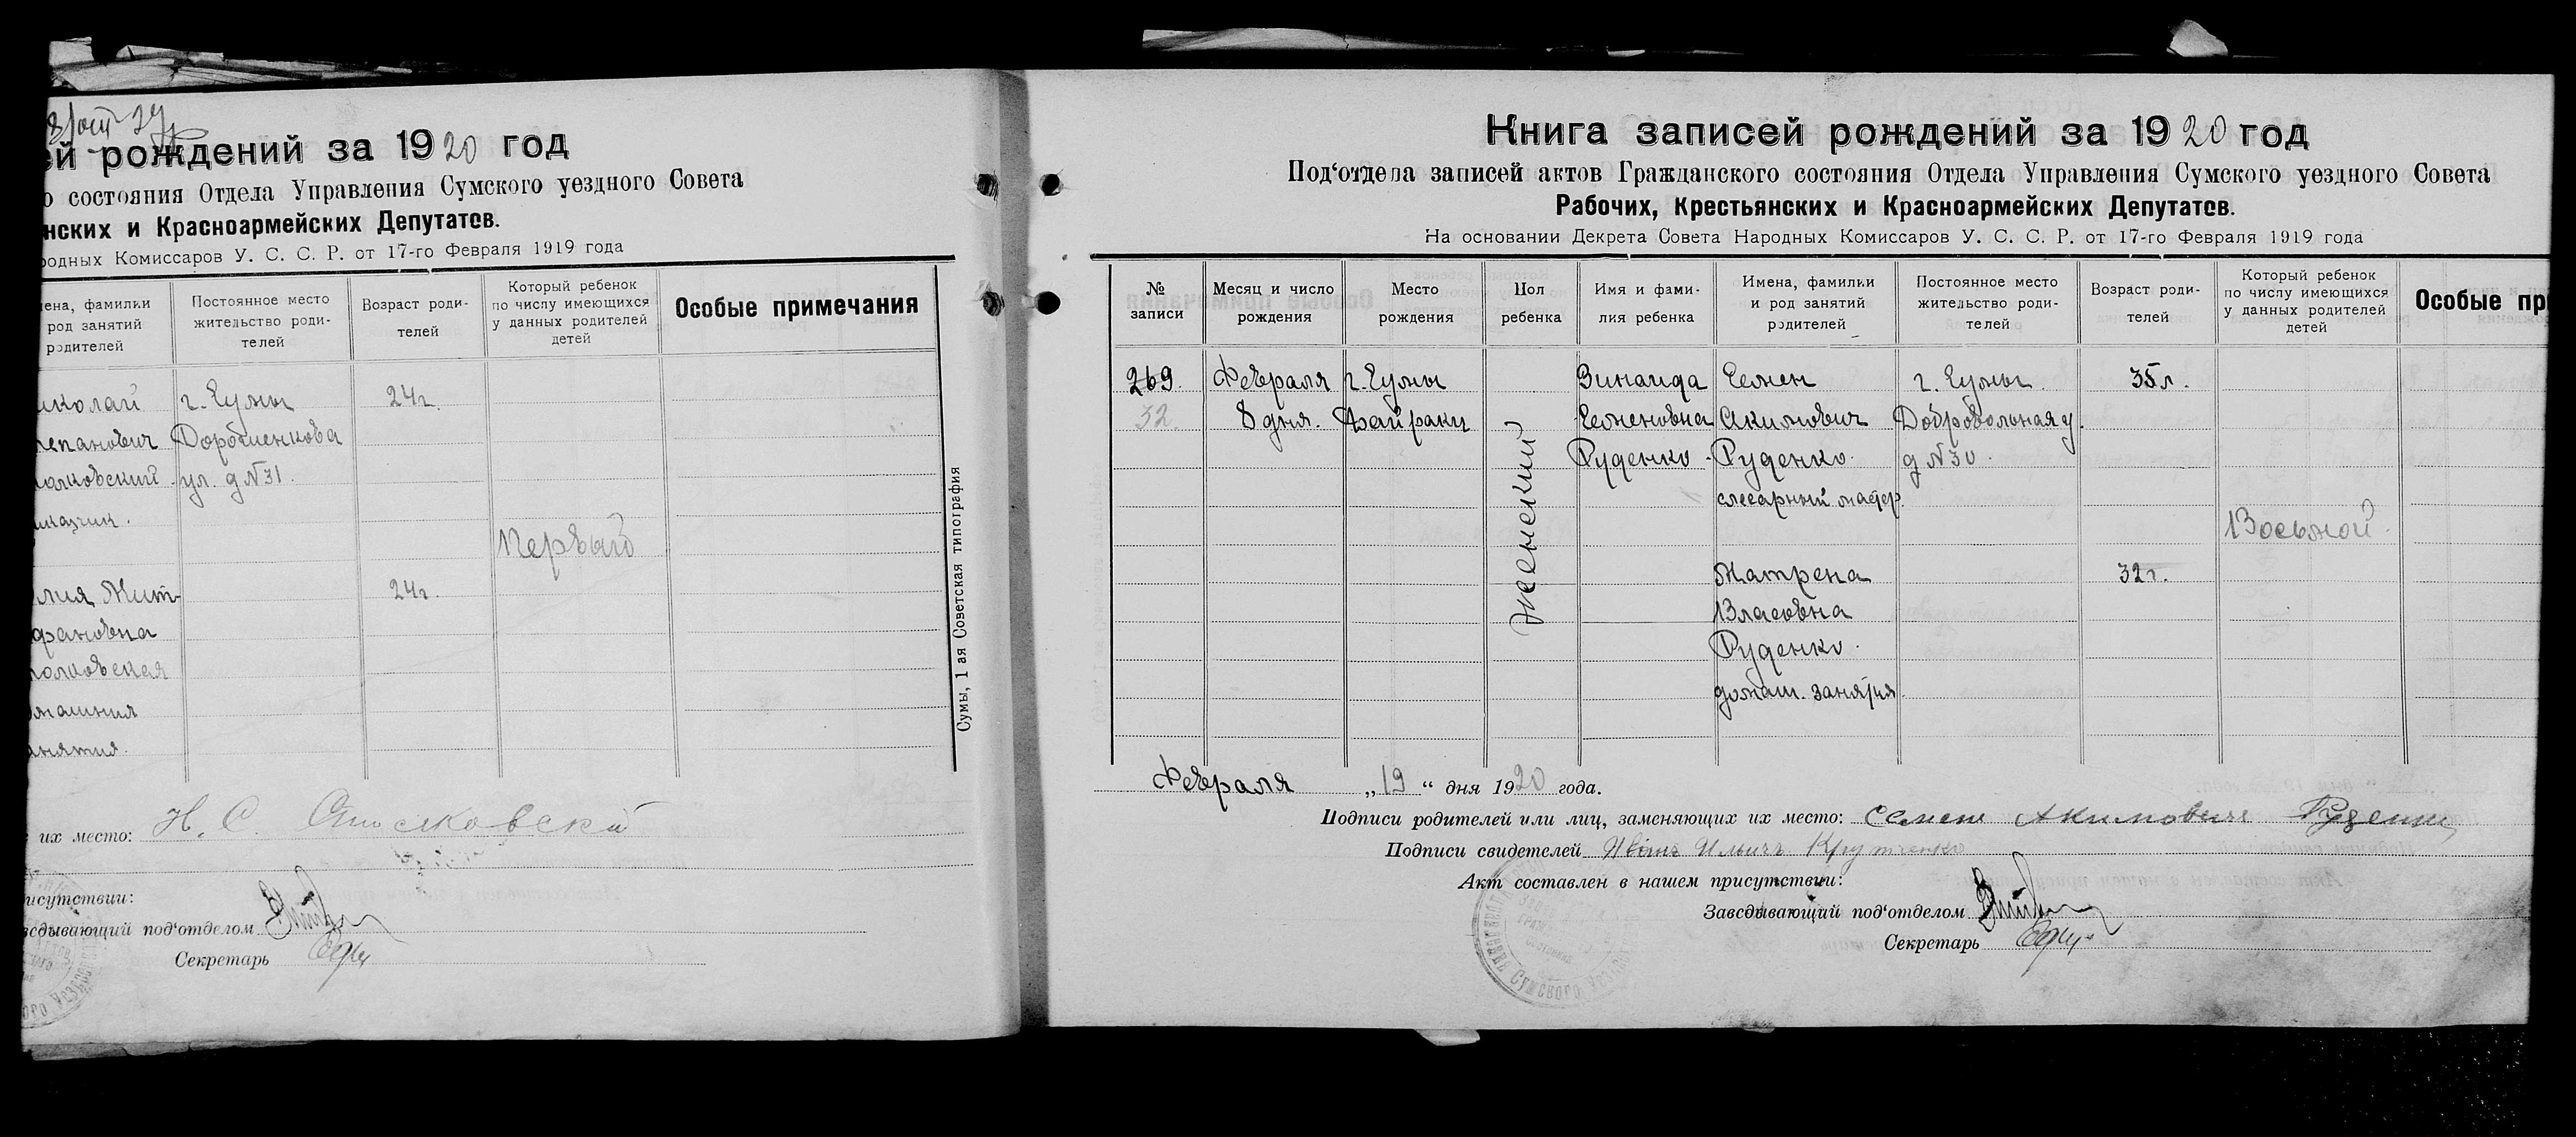 ей рождений за 1920 год
о состояния Отдела Управления Сумского уездного Совета
нских и Красноармейских Депутатов.
родных Комиссаров У. С. С. Р. от 17-го Февраля 1919 года
мена, фамилии
род занятий
родителей
Постоянное место
жительство роди-
телей
Возраст роди-
телей
Который ребенок
по числу имеющихся
у данных родителей
детей
Особые примечания
иколай
г. Сумы
24 г.
тепанович
ул. д № 31.
Первый
лия Мит-
24 г.
рофановна
машния
анятия.
их место: Н. С.
рисутствии:
аведывающий под‘отделом
Секретарь
Сумы, 1 ая Советская типография
Книга записей рождений за 1920 год
Под‘отдела записей актов Гражданского состояния Отдела Управления Сумского уездного Совета
Рабочих, Крестьянских и Красноармейских Депутатов.
На основании Декрета Совета Народных Комиссаров У. С. С. Р. от 17-го Февраля 1919 года
№
записи
Месяц и число
рождения
Место
рождения
Пол
ребенка
Имя и фами-
лия ребенка
Имена, фамилии
и род занятий
родителей
Постоянное место
жительство роди-
телей
Возраст роди-
телей
Который ребенок
по числу имеющихся
у данных родителей
детей
Особые пр
269.
32.
Февраля
8 дня.
г. Сумы
Байраки
женский
Зинаида
Семеновна
Руденко.
Семен
Акимович
Руденко.
слесарный мастер.
Матрена
Власовна
Руденко.
домаш. занятия.
г. Сумы.
Добровольная у.
д № 30.
35 л.
32 г.
Восьмой.
Февраля „19“ дня 1920 года.
Подписи родителей или лиц, заменяющих их место: Семен Акимович Руденко
Подписи свидетелей Ильич
Акт составлен в нашем присутствии:
Заведывающий под‘отделом
Секретарь